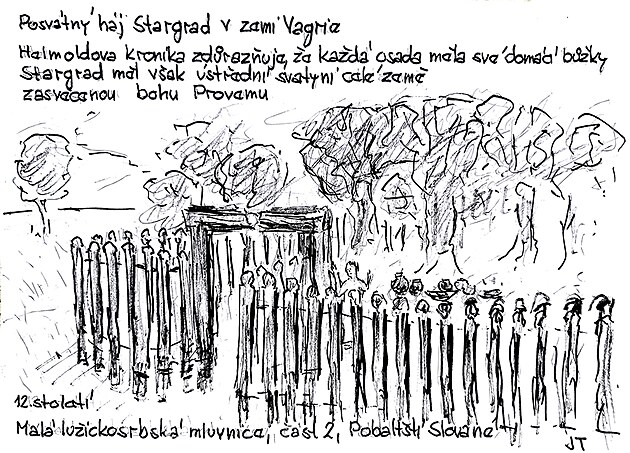 Posvátný háj Stargrad v zemi Vagrie
Helmoldova kronika zdůrazňuje, že každá osada měla své domácí bůžky
Stargrad měl však ústřední svatyni celé země
zasvěcenou bohu Provemu
12. století
Malá lužickosrbská mluvnice, část 2, Pobaltští Slované
JT